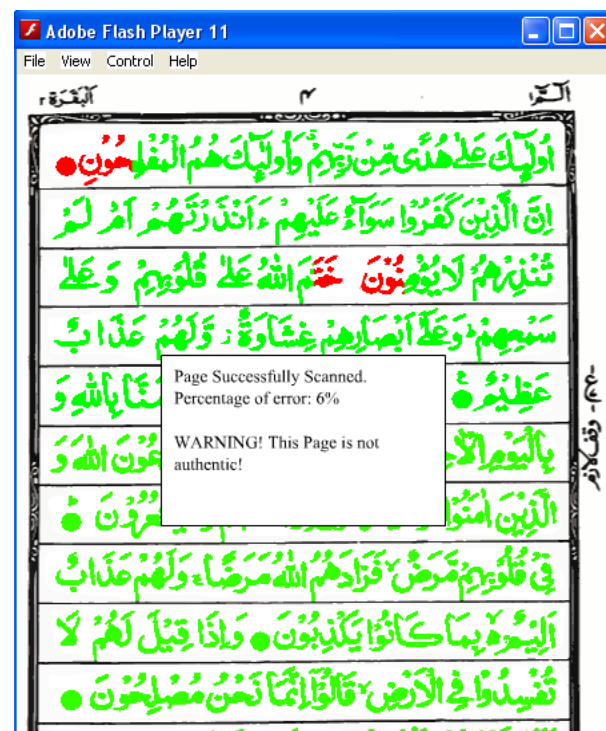 Adobe Flash Player 11
File View Control Help
الٓمّٓ ١ ٤ اَلْبَقَرَة ٢
اُولٰٓئِكَ عَلٰى هُدًى مِّنْ رَّبِّهِمْ وَاُولٰٓئِكَ هُمُ الْمُفْلِحُوْنِ
اِنَّ الَّذِيْنَ كَفَرُوْا سَوَآءٌ عَلَيْهِمْ ءَاَنْذَرْتَهُمْ اَمْ لَمْ
تُنْذِرْهُمْ لَا يُؤْمِنُوْنَ خَتَمَ اللّٰهُ عَلٰى قُلُوْبِهِمْ وَعَلٰى
سَمْعِهِمْ وَعَلٰٓى اَبْصَارِهِمْ غِشَاوَةٌ وَّلَهُمْ عَذَابٌ
عَظِيْمٌ مَنَّا بِاللّٰهِ وَ
بِالْيَوْمِ عُوْنَ اللّٰهَ وَ
الَّذِيْنَ اٰمَنُوْا
فِيْ قُلُوْبِهِمْ مَّرَضٌ فَزَادَهُمُ اللّٰهُ مَرَضًا وَلَهُمْ عَذَابٌ
اَلِيْمٌ بِمَا كَانُوْا يَكْذِبُوْنَ وَاِذَا قِيْلَ لَهُمْ لَا
تُفْسِدُوْا فِي الْاَرْضِ قَالُوْٓا اِنَّمَا نَحْنُ مُصْلِحُوْنَ
وقف لازم
Page Successfully Scanned.
Percentage of error: 6%
WARNING! This Page is not
authentic!